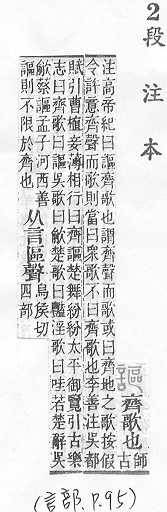 2段注本
謳 齊歌也 師古
注高帝紀曰謳齊歌也謂齊聲而歌或曰齊地之歌按假
令許意齊聲而歌則當曰衆歌不曰齊歌也李善注吳都
賦引曹植妾薄相行曰齊謳楚舞紛紛太平御覽引古樂
志曰齊歌曰謳吳歌曰歈楚歌曰豔淫歌曰哇若楚辭吳
歈蔡謳孟子河西善
謳則不限於齊也
从言區聲
烏侯切
四部
(言部.P.95)